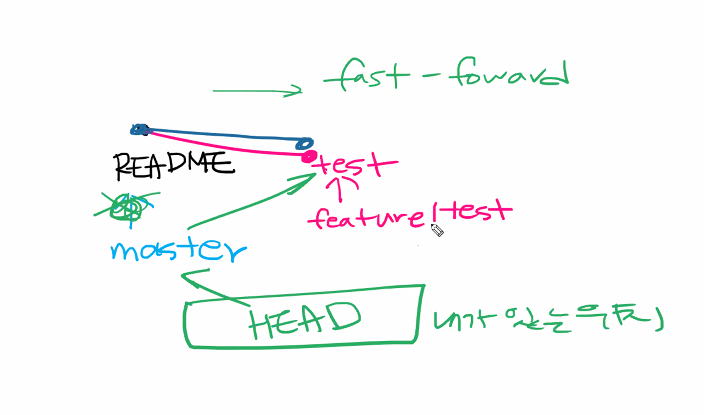 fast - foward
README
test
feature/test
master
HEAD
내가 있는 위치